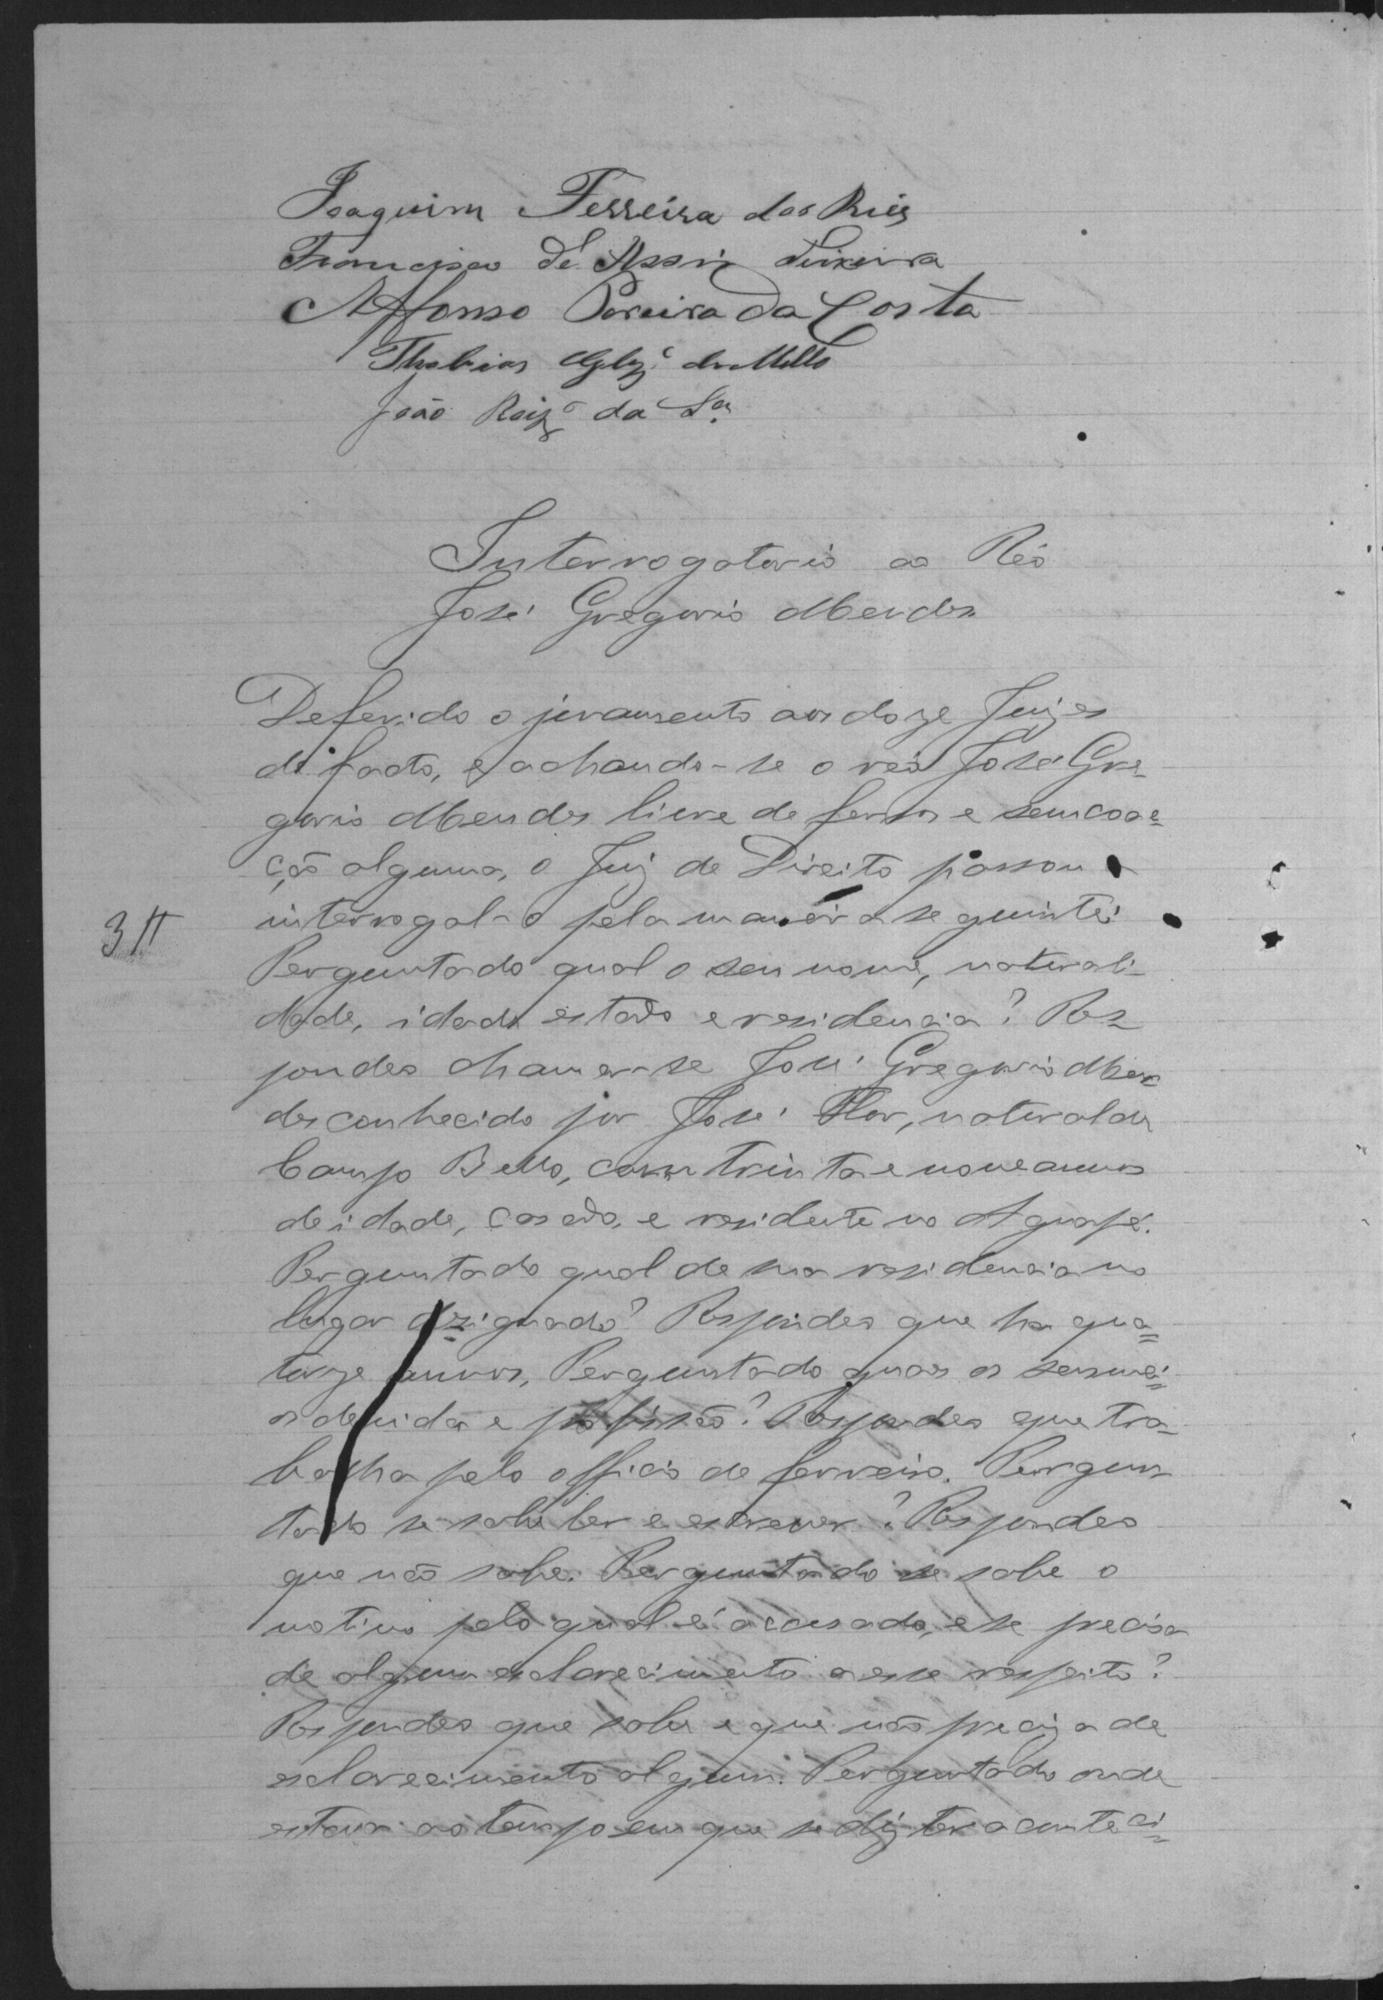 Joaquim Ferreira dos Reis
Francisco de Assis Teixeira
Affonso Pereira da Costa
Thobias de Mello
João Roiz da Sa.
Interrogatorio ao Réo
José Gregorio Mendes
Deferido o juramento aos doze Juizes
de facto, e achando-se o réo José Gre-
gorio Mendes livre de ferros e sem coac-
ção alguma, o Juiz de Direito passou a
interrogal-o pela maneira seguinte:
31
Perguntado qual o seu nome, naturali-
dade, idade estado e residencia? Res-
pondeo chamar-se José Gregorio Men-
des conhecido por José Flor, natural do
Campo Bello, com trinta e nove annos
de idade, casado, e residente no Aguapé.
Perguntado qual de sua residencia no
lugar dezignado? Respondeo que ha qua-
torze annos, Perguntado quaes os seus mei-
os de vida e profissão? Respondeo que tra-
balha pelo officio de ferreiro. Pergun-
tado se sabe ler e escrever? Respondeo
que não sabe. Perguntado se sabe o
motivo pelo qual é accusado, e se precisa
de algum esclarecimento a esse respeito?
Respondeo que sabe e que não preciza de
esclarecimento algum. Perguntado onde
estava ao tempo em que se diz ter aconteci-